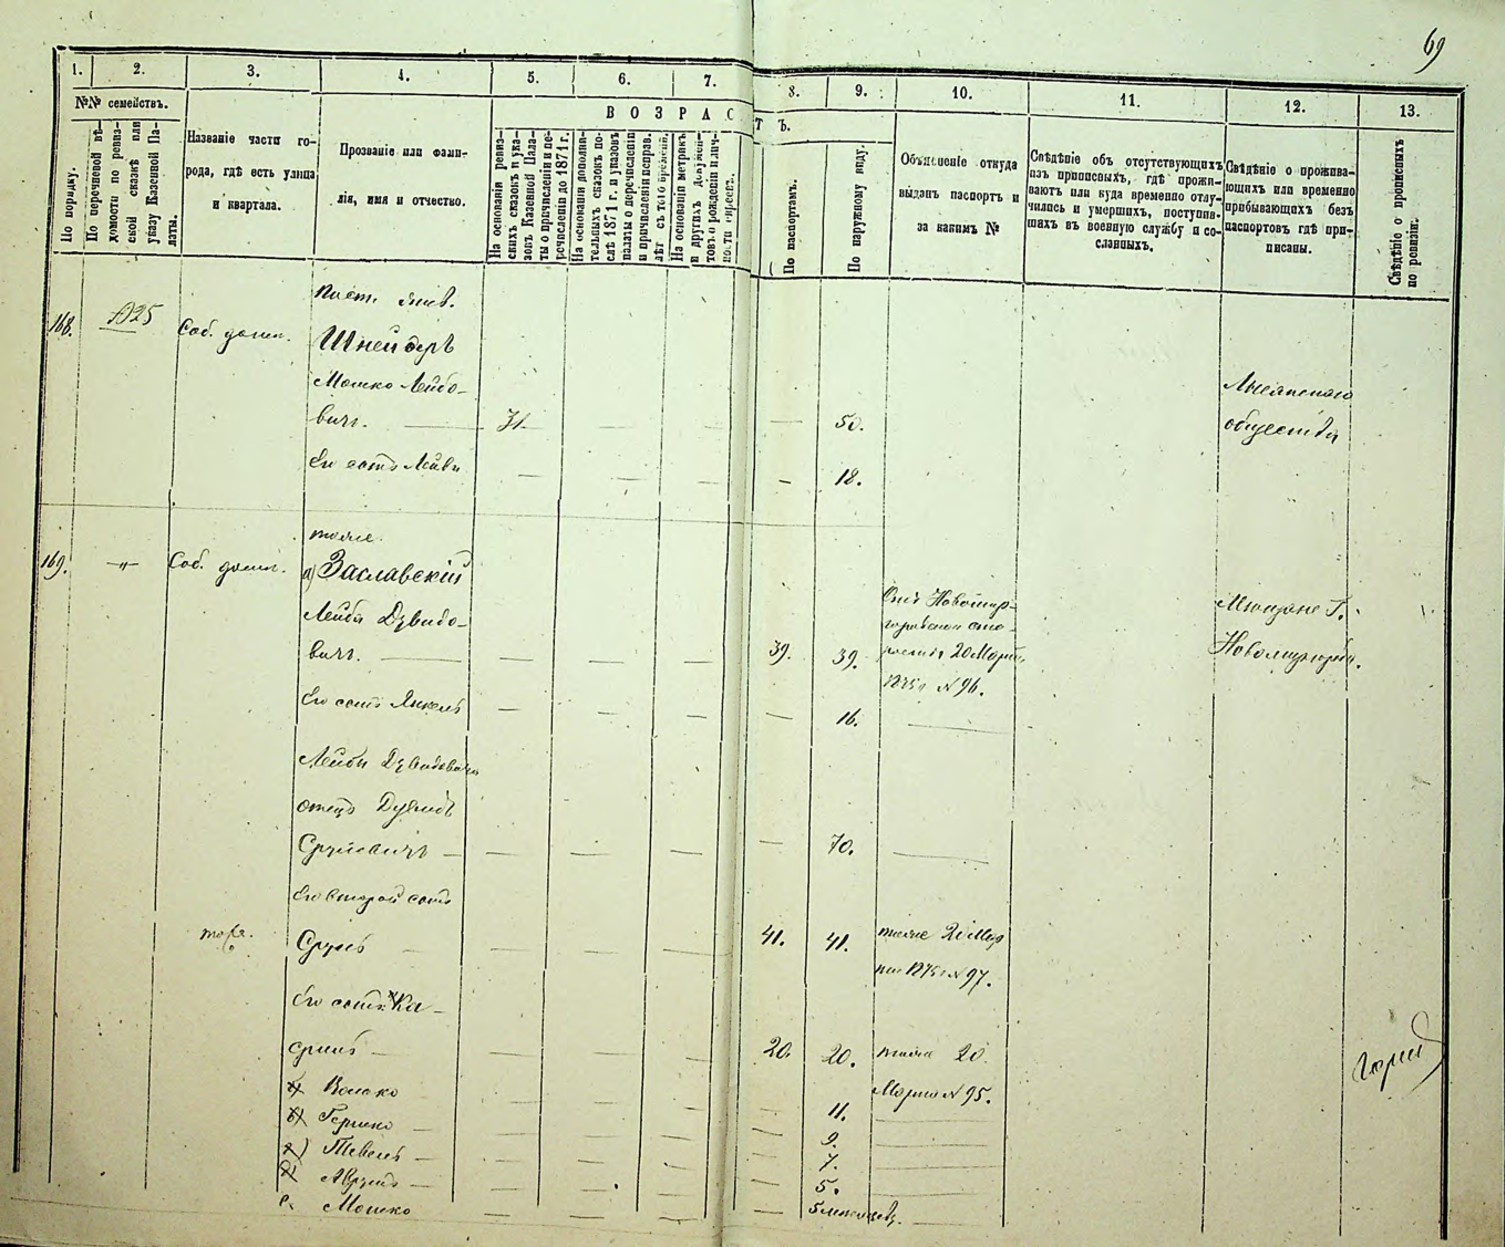 69
1. 2. 3. 4. 5. 6. 7. 8. 9. 10. 11. 12. 13.
№№ семействъ.
В О З Р А С Т Ъ.
По порядку.
По перечневой вѣ-
домости по ревиз-
ской сказкѣ или
указу Казенной Па-
латы.
Названіе части го-
рода, гдѣ есть улица
и квартала.
Прозваніе или фами-
лія, имя и отчество.
На основаніи ревиз-
скихъ сказокъ и ука-
зовъ Казенной Пала-
ты о причисленіи и пе-
речисленіи до 1871 г.
На основаніи дополни-
тельныхъ сказокъ по-
слѣ 1871 г. и указовъ
палаты о перечисленіи
и причисленіи исправ.
лѣт съ того времени.
На основаніи метрикъ
и другихъ докумен-
товъ о рожденіи и лич-
ности евреевъ.
По паспортамъ.
По наружному виду.
Объясненіе откуда
выданъ паспортъ и
за какимъ №
Свѣдѣніе объ отсутствующихъ
изъ приписныхъ, гдѣ прожи-
ваютъ или куда временно отлу-
чились и умершихъ, поступив-
шихъ въ военную службу и со-
сланныхъ.
Свѣдѣніе о прожива-
ющихъ или временно
прибывающихъ безъ
паспортовъ гдѣ при-
писаны.
Свѣдѣніе о прописныхъ
по ревизіи.
168. 225 Соб. домъ.
Шнейдеръ
Мошко Лейбо-
вичъ. 31 — — — 50.
Его сынъ Лейви — — — — 18.
общества
тоже.
169. —"— Соб. домъ. а) Заславскій
Лейба Дувидо-
вичъ. — — — — 39. 39.
Новомир-
городской
20 Марта
1875 г. № 96.
Мещане Г.
Новомиргорода.
Его сынъ Янкель — — — — 16.
Лейбы Дувидовича
отецъ Дувидъ
Срулевичъ — — — — — 70.
Его второй сынъ
тоже. Сруль — — — — 41. 41. тоже 20 Мар
та 1875 г. № 97.
Его сынъ Ка-
сриль — — — — 20. 20. тоже 20
Марта № 95.
Волько — — — — 11.
Гершко — — — — — 9.
Тевель — — — — — 7.
Аврумъ — — — — — 5.
Мошко — — — — 5 месяцевъ.